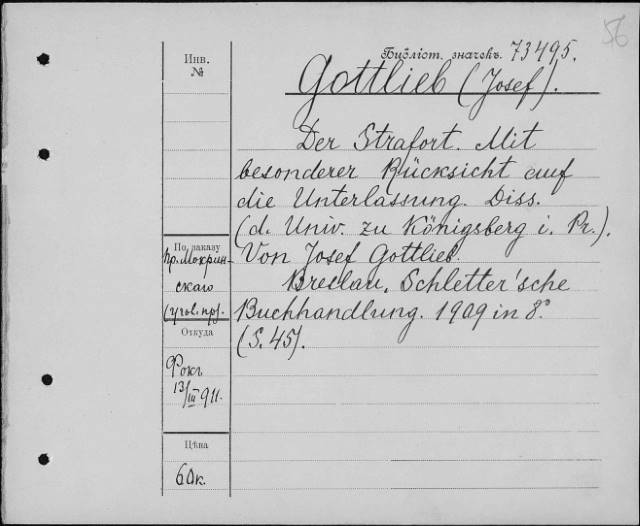 56
Библіот. значекъ. 73495.
Gottlieb (Josef).
Инв.
№
Der Strafort. Mit
besonderer Rücksicht auf
die Unterlassung. Diss.
(d. Univ. zu Königsberg i. Pr.).
Von Josef Gottlieb.
Breslau, Schletter'sche
Buchhandlung. 1909 in 8°
(S. 45).
По заказу
пр. Мокрин-
скаго
(угол. пр).
Откуда
Фокъ
13/III 911.
Цѣна
60к.